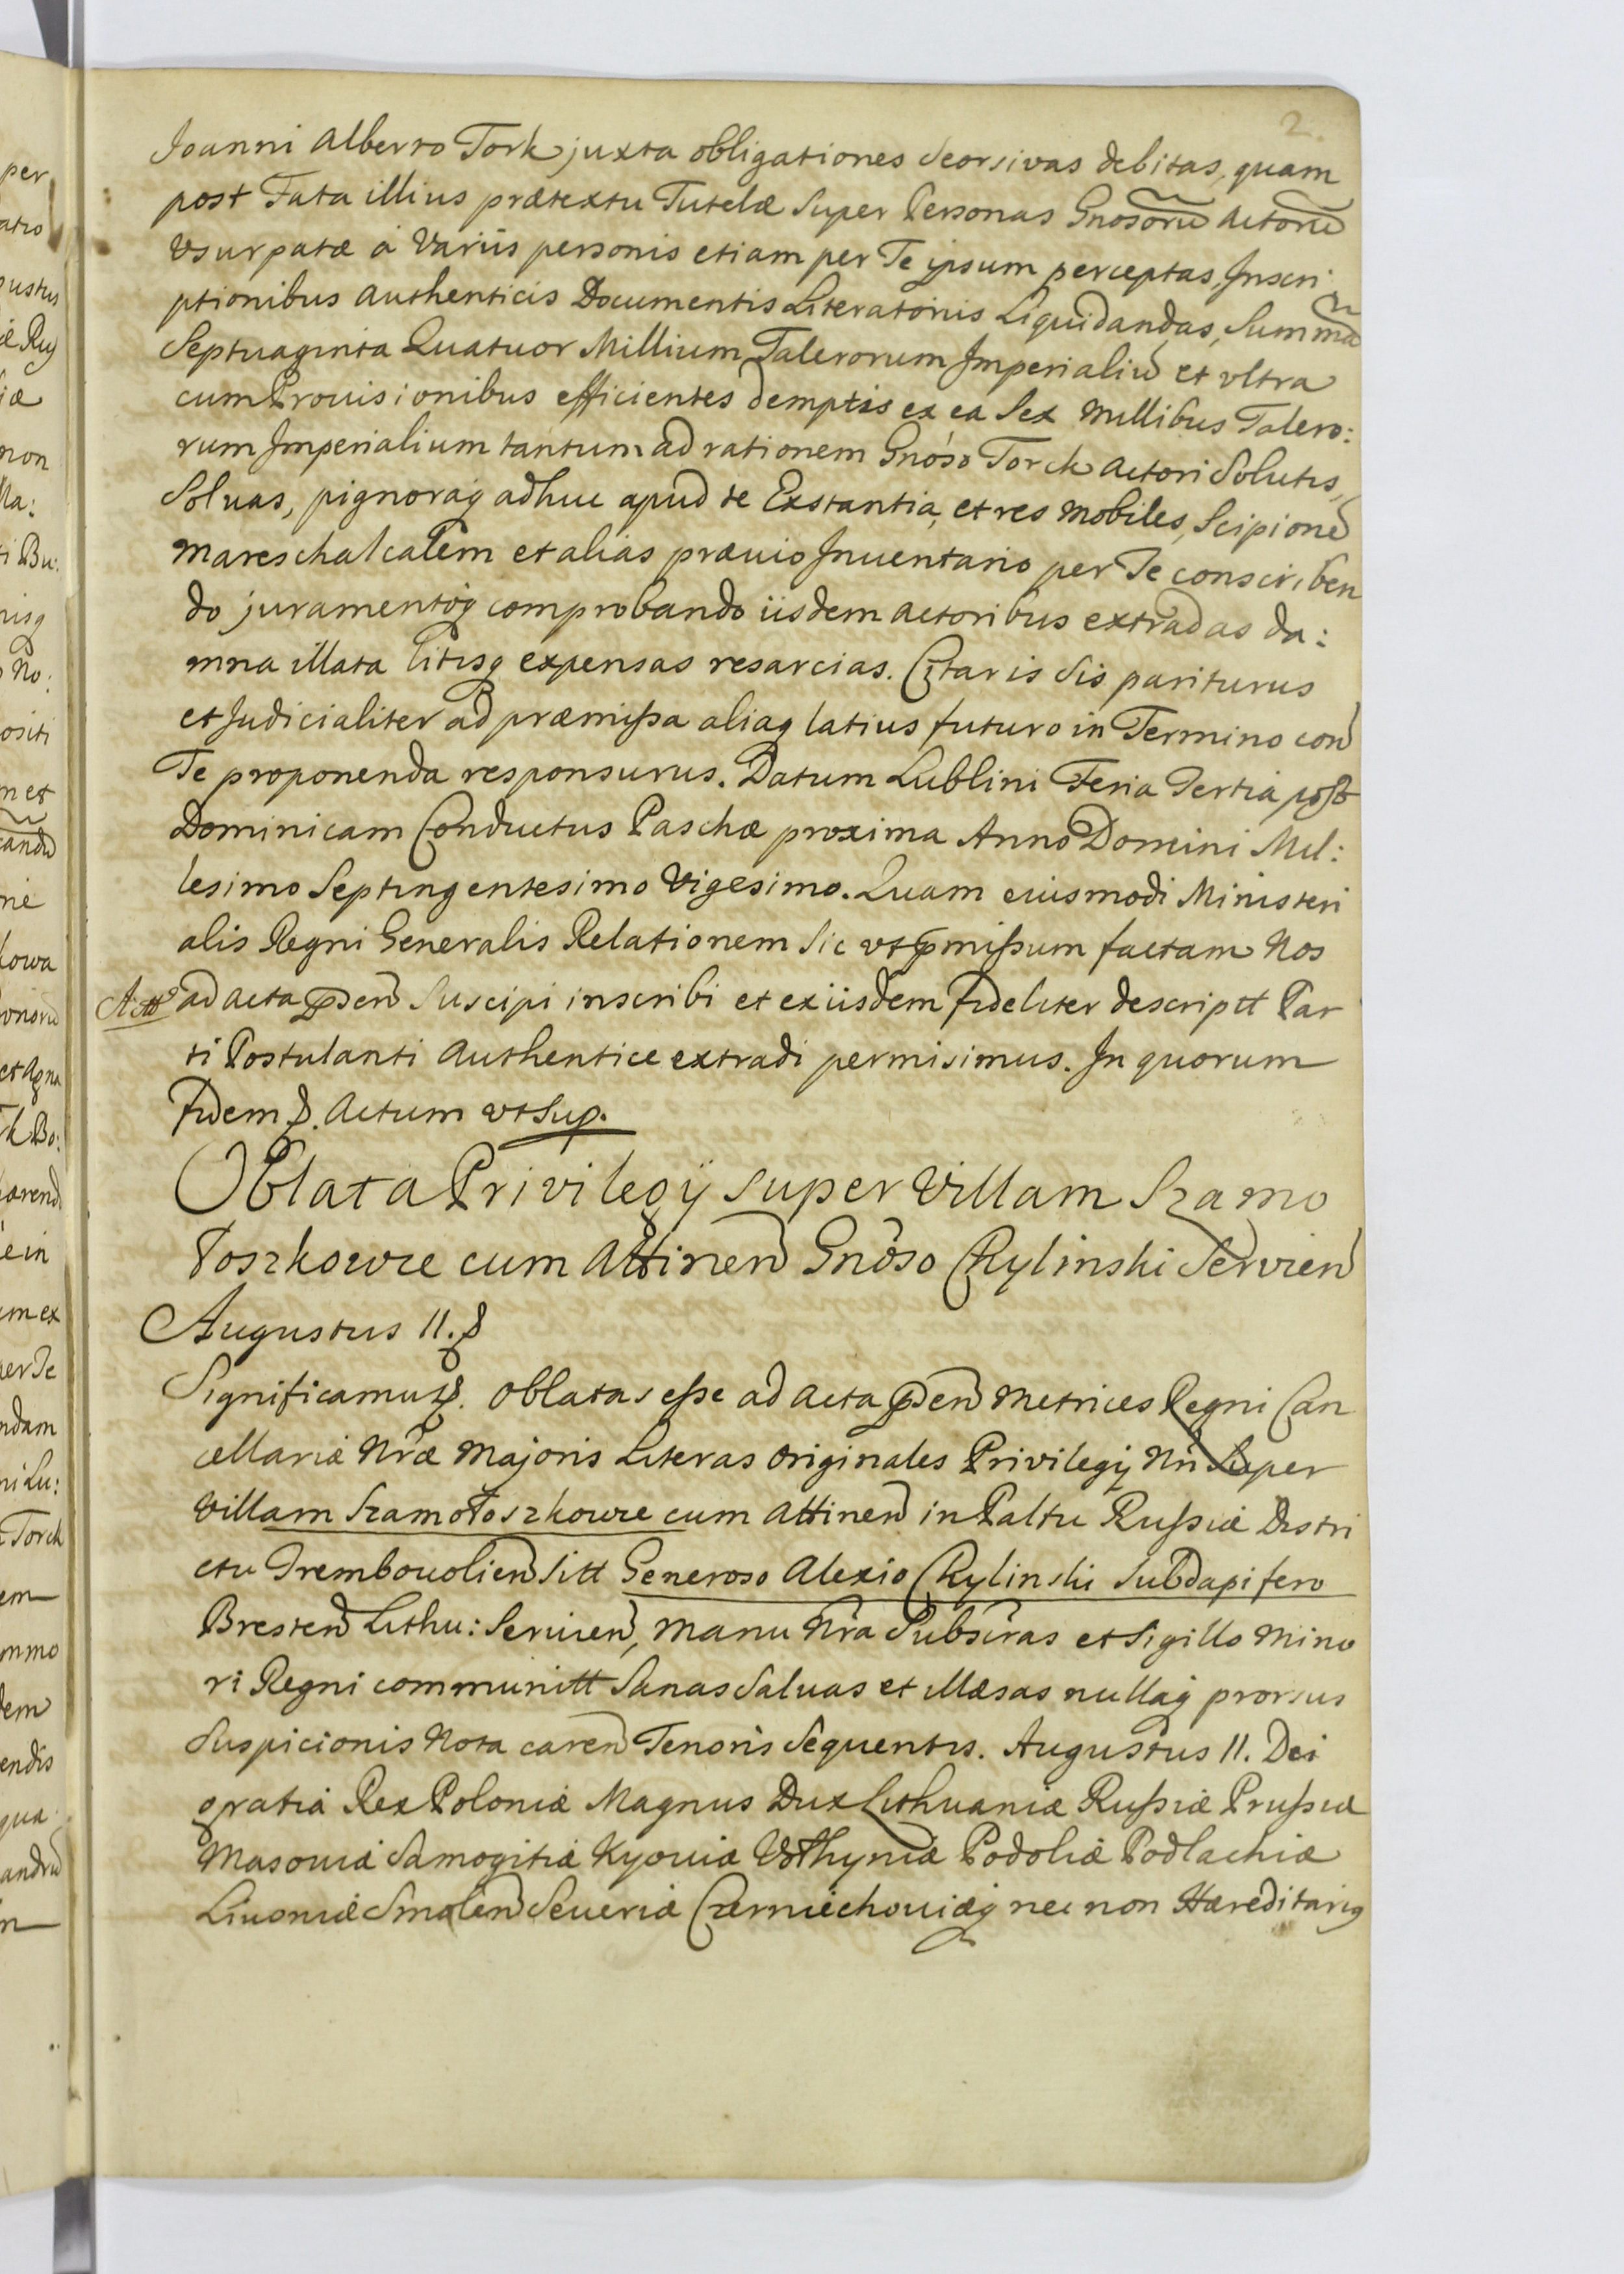 2.
Joanni Alberto Tork juxta obligationes seorsivas debitas, quam
post Fata illius prætextu Tutelæ super Personas Gnosorū Actorū
Usurpatæ à Variis personis etiam per Te ipsum perceptas, Inscri
ptionibus Authenticis Documentis Literatoriis Liquidandas, Summā
Septuaginta Quatuor Millium Talerorum Imperialiū et ultra
cum Provisionibus efficientes demptis ex ea Sex Millibus Talero:
rum Imperialium tantum ad rationem Gnoso Torck Actori Solutis,
Solvas, pignoraq adhuc apud te Exstantia, et res Mobiles, Scipionē
Mareschalcalem et alias prævio Inventario per Te conscriben
do juramentoq comprobando iisdem Actoribus extradas da:
mna illata litisq expensas resarcias. Citaris sis pariturus
et Judicialiter ad præmissa aliaq latius futuro in Termino con
Te proponenda responsurus. Datum Lublini Feria Tertia post
Dominicam Conductus Paschæ proxima Anno Domini Mil:
lesimo Septingentesimo Vigesimo. Quam eiusmodi Ministeri
alis Regni Generalis Relationem Sic ut pmissum factam Nos
ad acta pñen Suscipi inscribi et ex iisdem fideliter descriptt Par
ti Postulanti Authentice extradi permisimus. In quorum
Fidem &. Actum ut sup.
Oblata Privilegÿ super Villam Szamo
Toszkowce cum Attinen Gnoso Rylinski Servien
Augustus II. &
Significamus &. Oblatas esse ad Acta pñen Metrices Regni Can
cellariæ Nræ Majoris Literas Originales Privilegÿ Nri Super
Villam Szamotoszkowce cum Attinen in Paltu Russiæ Distri
ctu Trembovolien sitt Generoso Alexio Rylinski Subdapifero
Bresten Lithu: Servien, Manu Nra Subscras et Sigillo Mino
ri Regni communitt Sanas Salvas et illæsas nullaq prorsus
Suspicionis Nota caren Tenoris Sequentis. Augustus II. Dei
gratia Rex Poloniæ Magnus Dux Lithuaniæ Russiæ Prussiæ
Masoviæ Samogitiæ Kyoviæ Volhyniæ Podoliæ Podlachiæ
Livoniæ Smolen Severiæ Czerniechoviæq nec non Hæreditariq